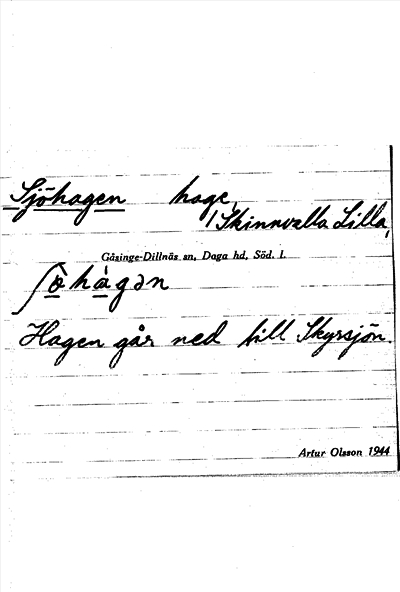 Sjöhagen hage,
Skinnvalla Lilla,
Gåsinge-Dillnäs sn, Daga hd, Söd. l.
ʃö̀hàgən
Hagen går ned till Skyrsjön.
Artur Olsson 1944